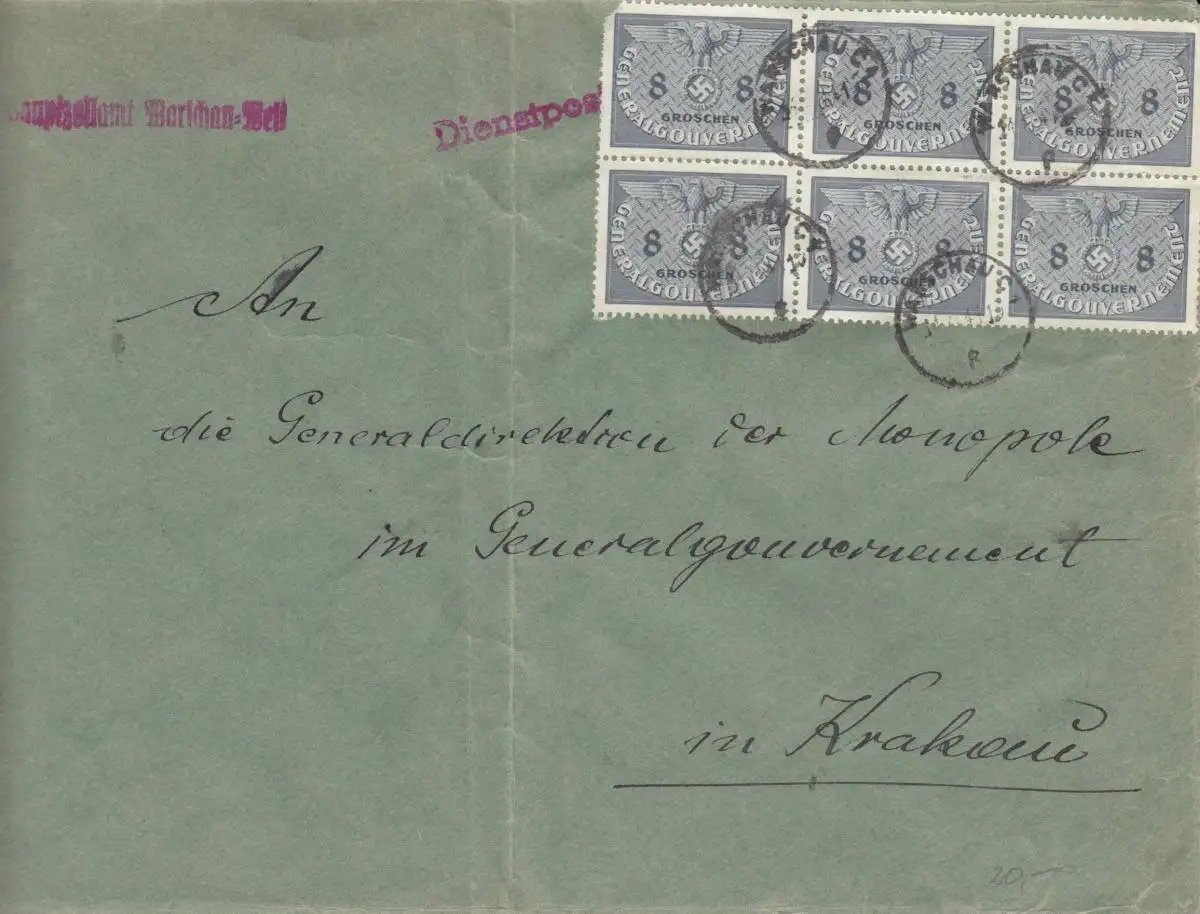 8 8 GROSCHEN GENERALGOUVERNEMENT
8 8 GROSCHEN GENERALGOUVERNEMENT
8 8 GROSCHEN GENERALGOUVERNEMENT
8 8 GROSCHEN GENERALGOUVERNEMENT
8 8 GROSCHEN GENERALGOUVERNEMENT
8 8 GROSCHEN GENERALGOUVERNEMENT
WARSCHAU C1
WARSCHAU C1
WARSCHAU C1
WARSCHAU C1
auptzollamt Warschau-West
Dienstpost
An
die Generaldirektion der Monopole
im Generalgouvernement
in Krakau
20,-